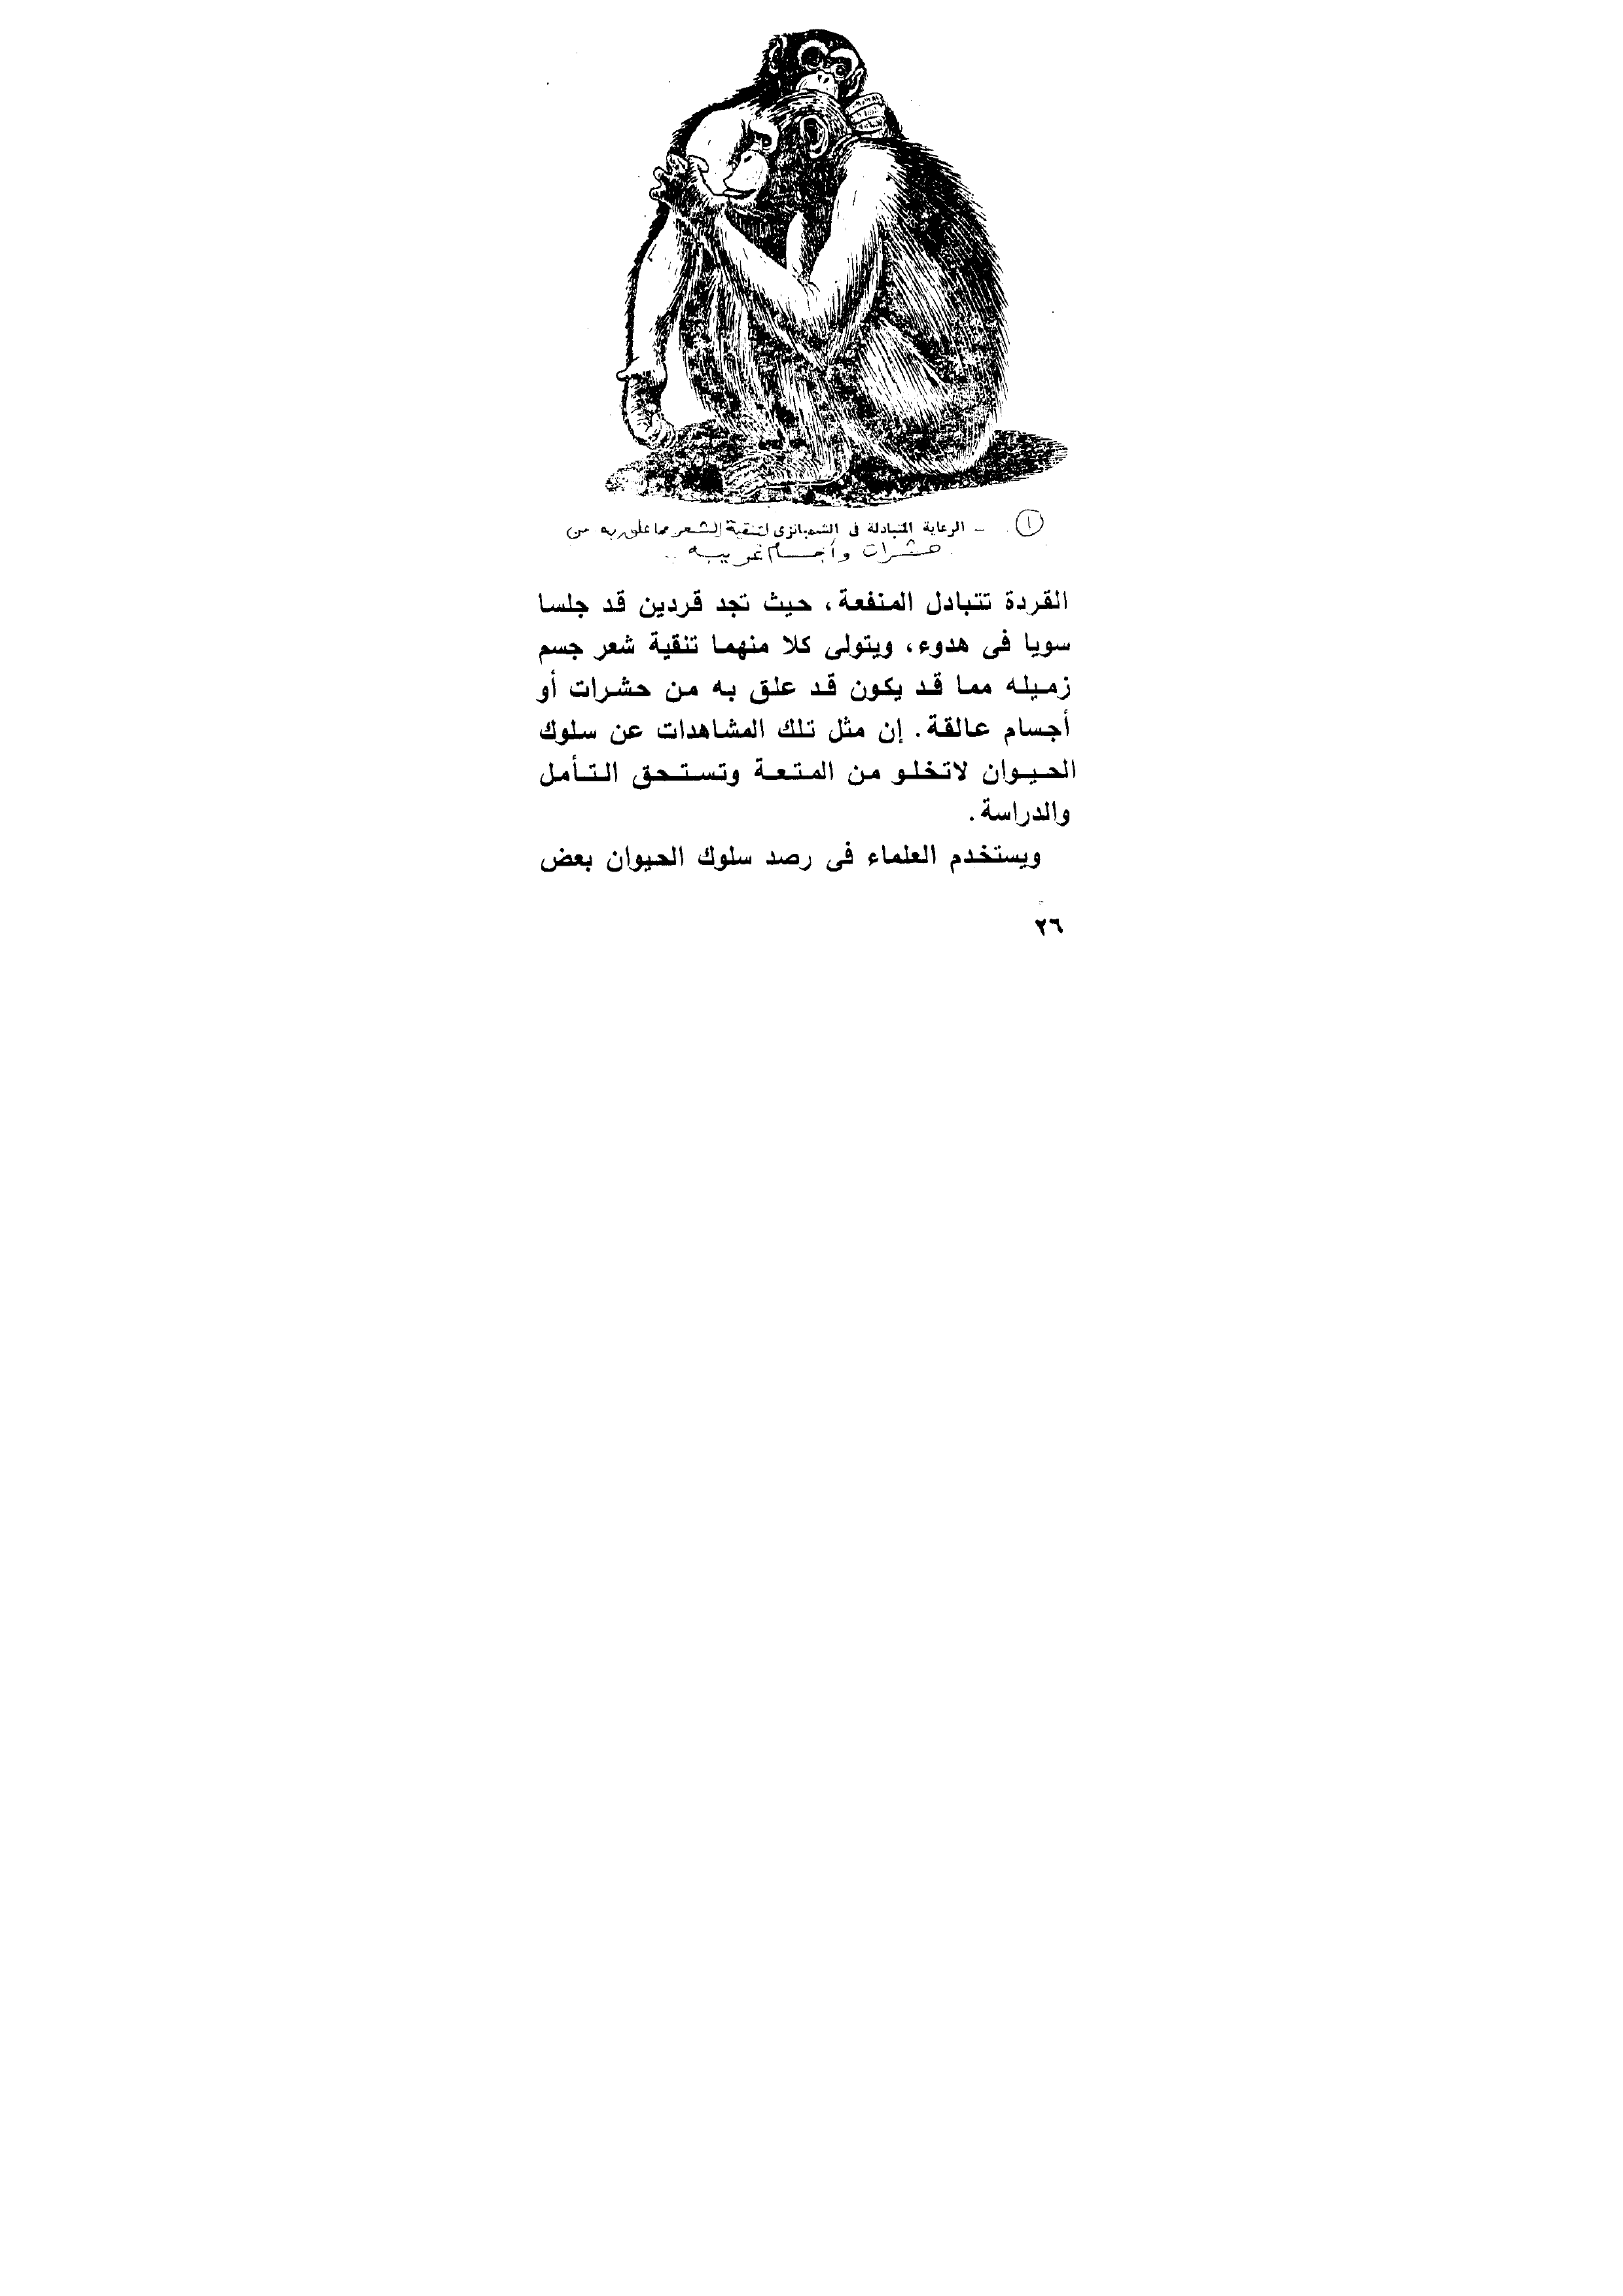 ١ - الرعاية المتبادلة فى الشمبانزى لتنقية الشعر مما علق به من
حشرات وأجسام غريبه
القردة تتبادل المنفعة، حيث تجد قردين قد جلسا
سويا فى هدوء، ويتولى كلا منهما تنقية شعر جسم
زميله مما قد يكون قد علق به من حشرات أو
أجسام عالقة. إن مثل تلك المشاهدات عن سلوك
الحيوان لاتخلو من المتعة وتستحق التأمل
والدراسة.
ويستخدم العلماء فى رصد سلوك الحيوان بعض
٢٦